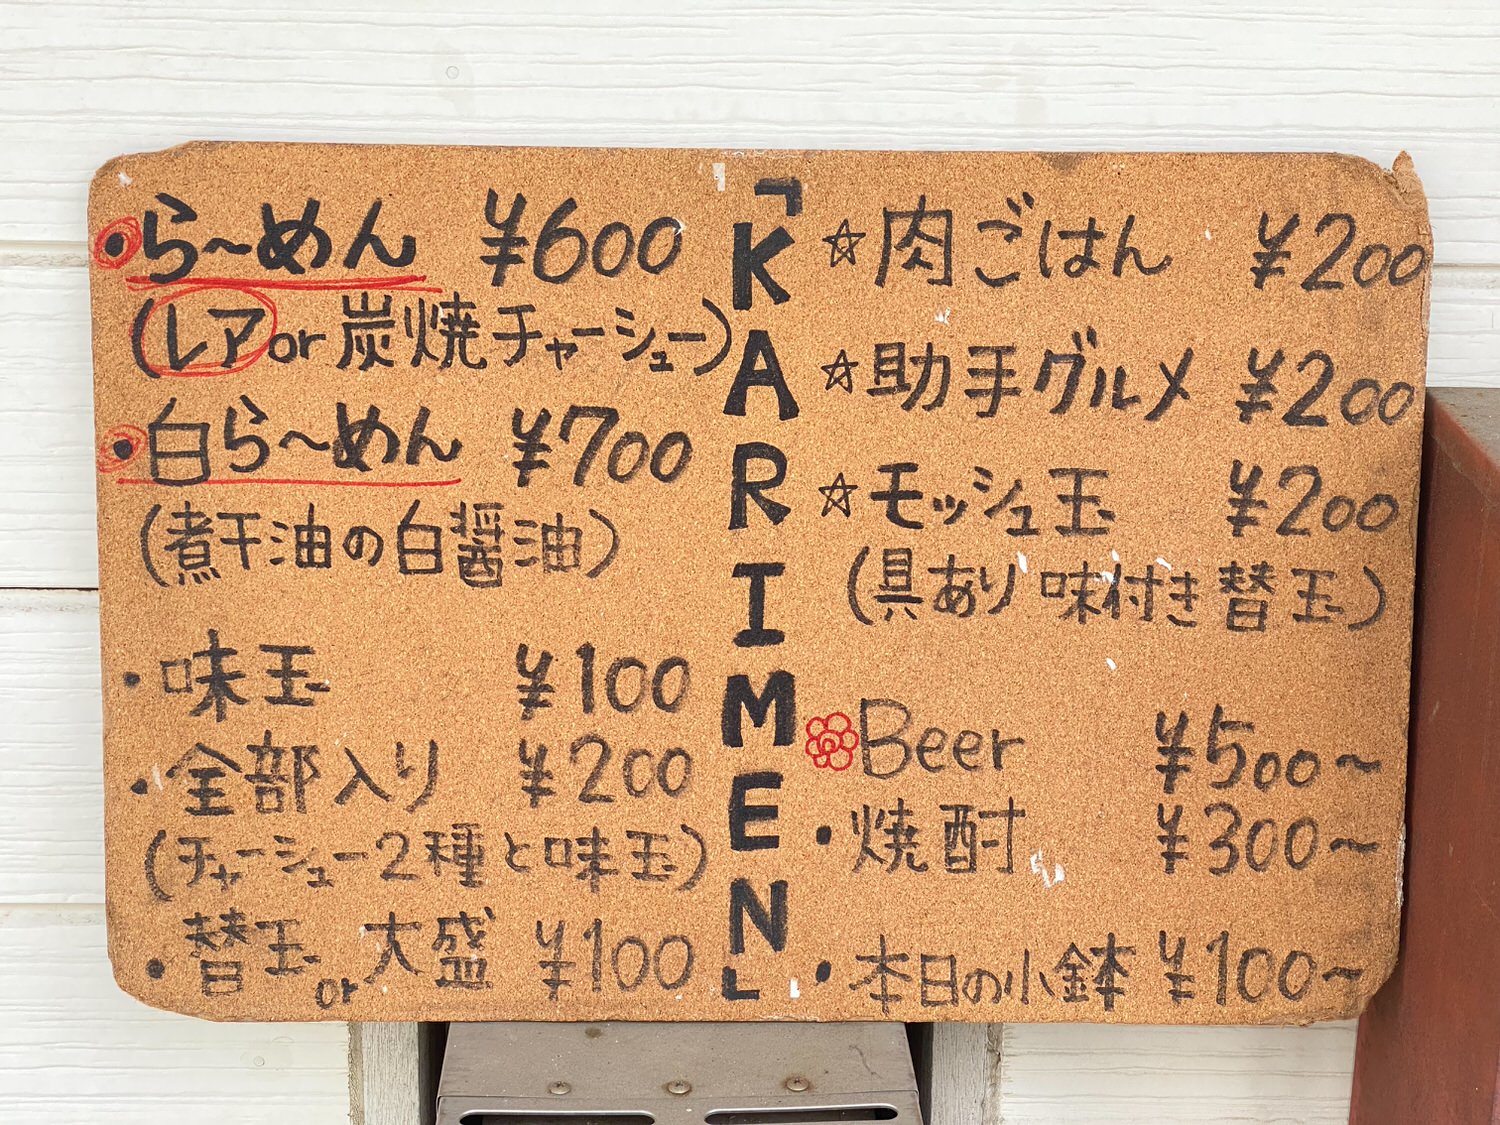 ・らーめん ¥600
(レア or 炭焼チャーシュー)
・白らーめん ¥700
(煮干油の白醤油)
・味玉 ¥100
・全部入り ¥200
(チャーシュー2種と味玉)
・替玉 or 大盛 ¥100
「KARIMEN」
☆肉ごはん ¥200
☆助手グルメ ¥200
☆モッシュ玉 ¥200
(具あり 味付き替玉)
Beer ¥500~
・焼酎 ¥300~
・本日の小鉢 ¥100~